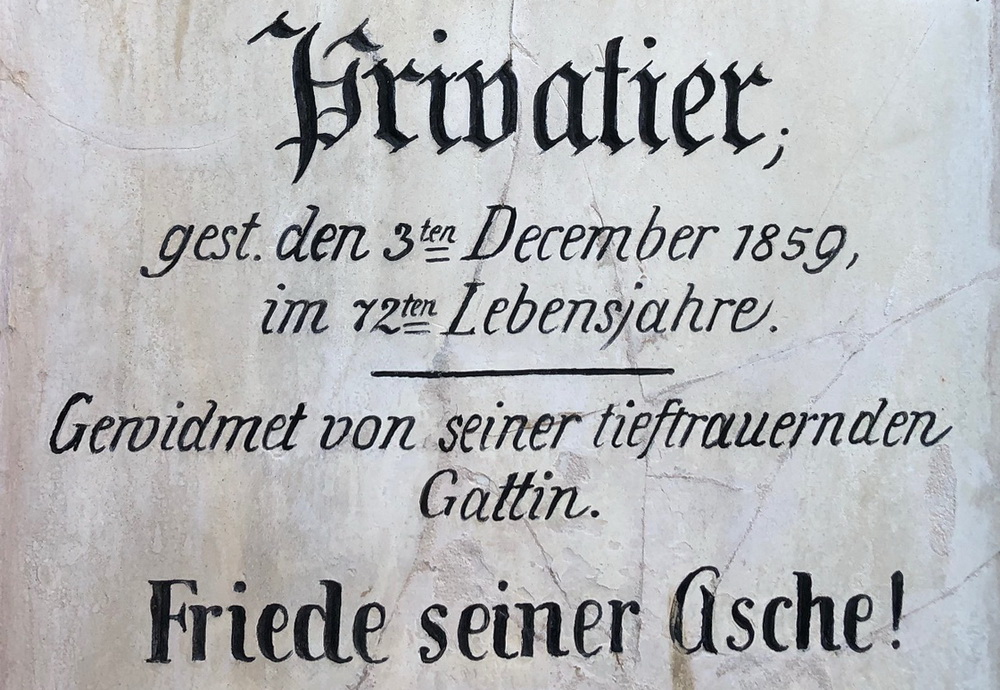 Privatier;
gest. den 3ten December 1859,
im 72ten Lebensjahre.
Gewidmet von seiner tieftrauernden
Gattin.
Friede seiner Asche!